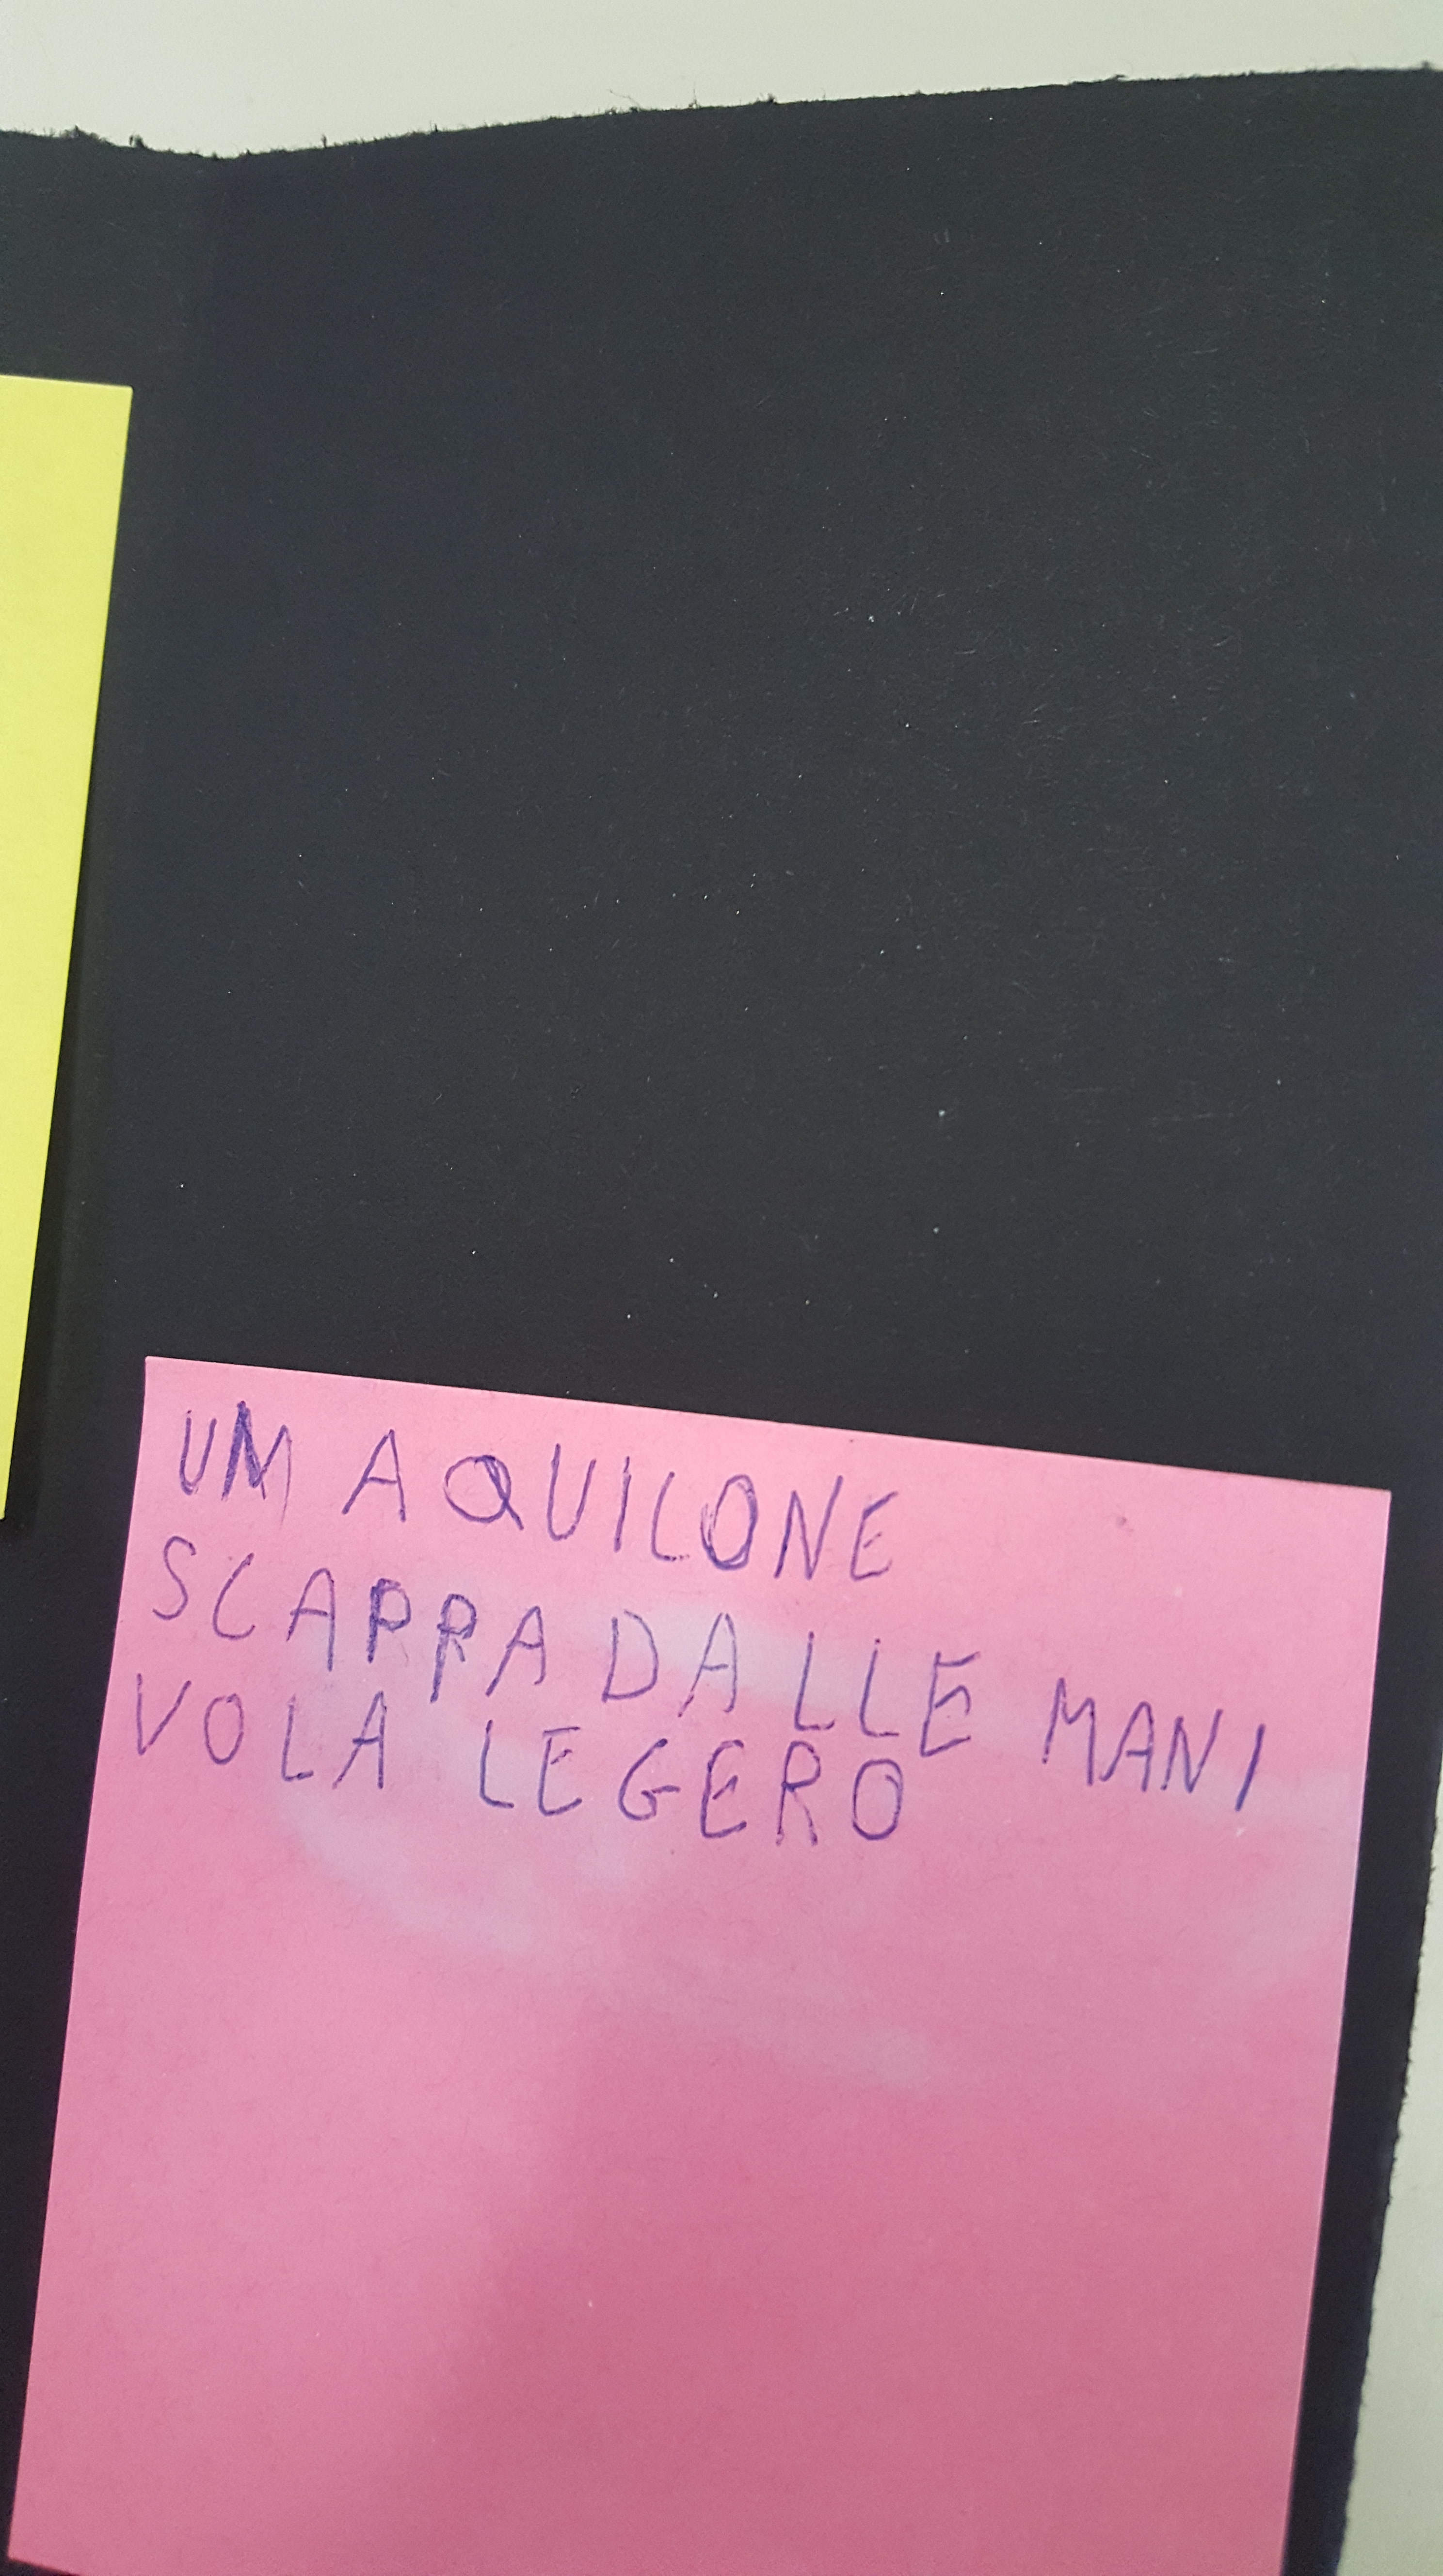 UM AQUILONE
SCAPPA DALLE MANI
VOLA LEGERO